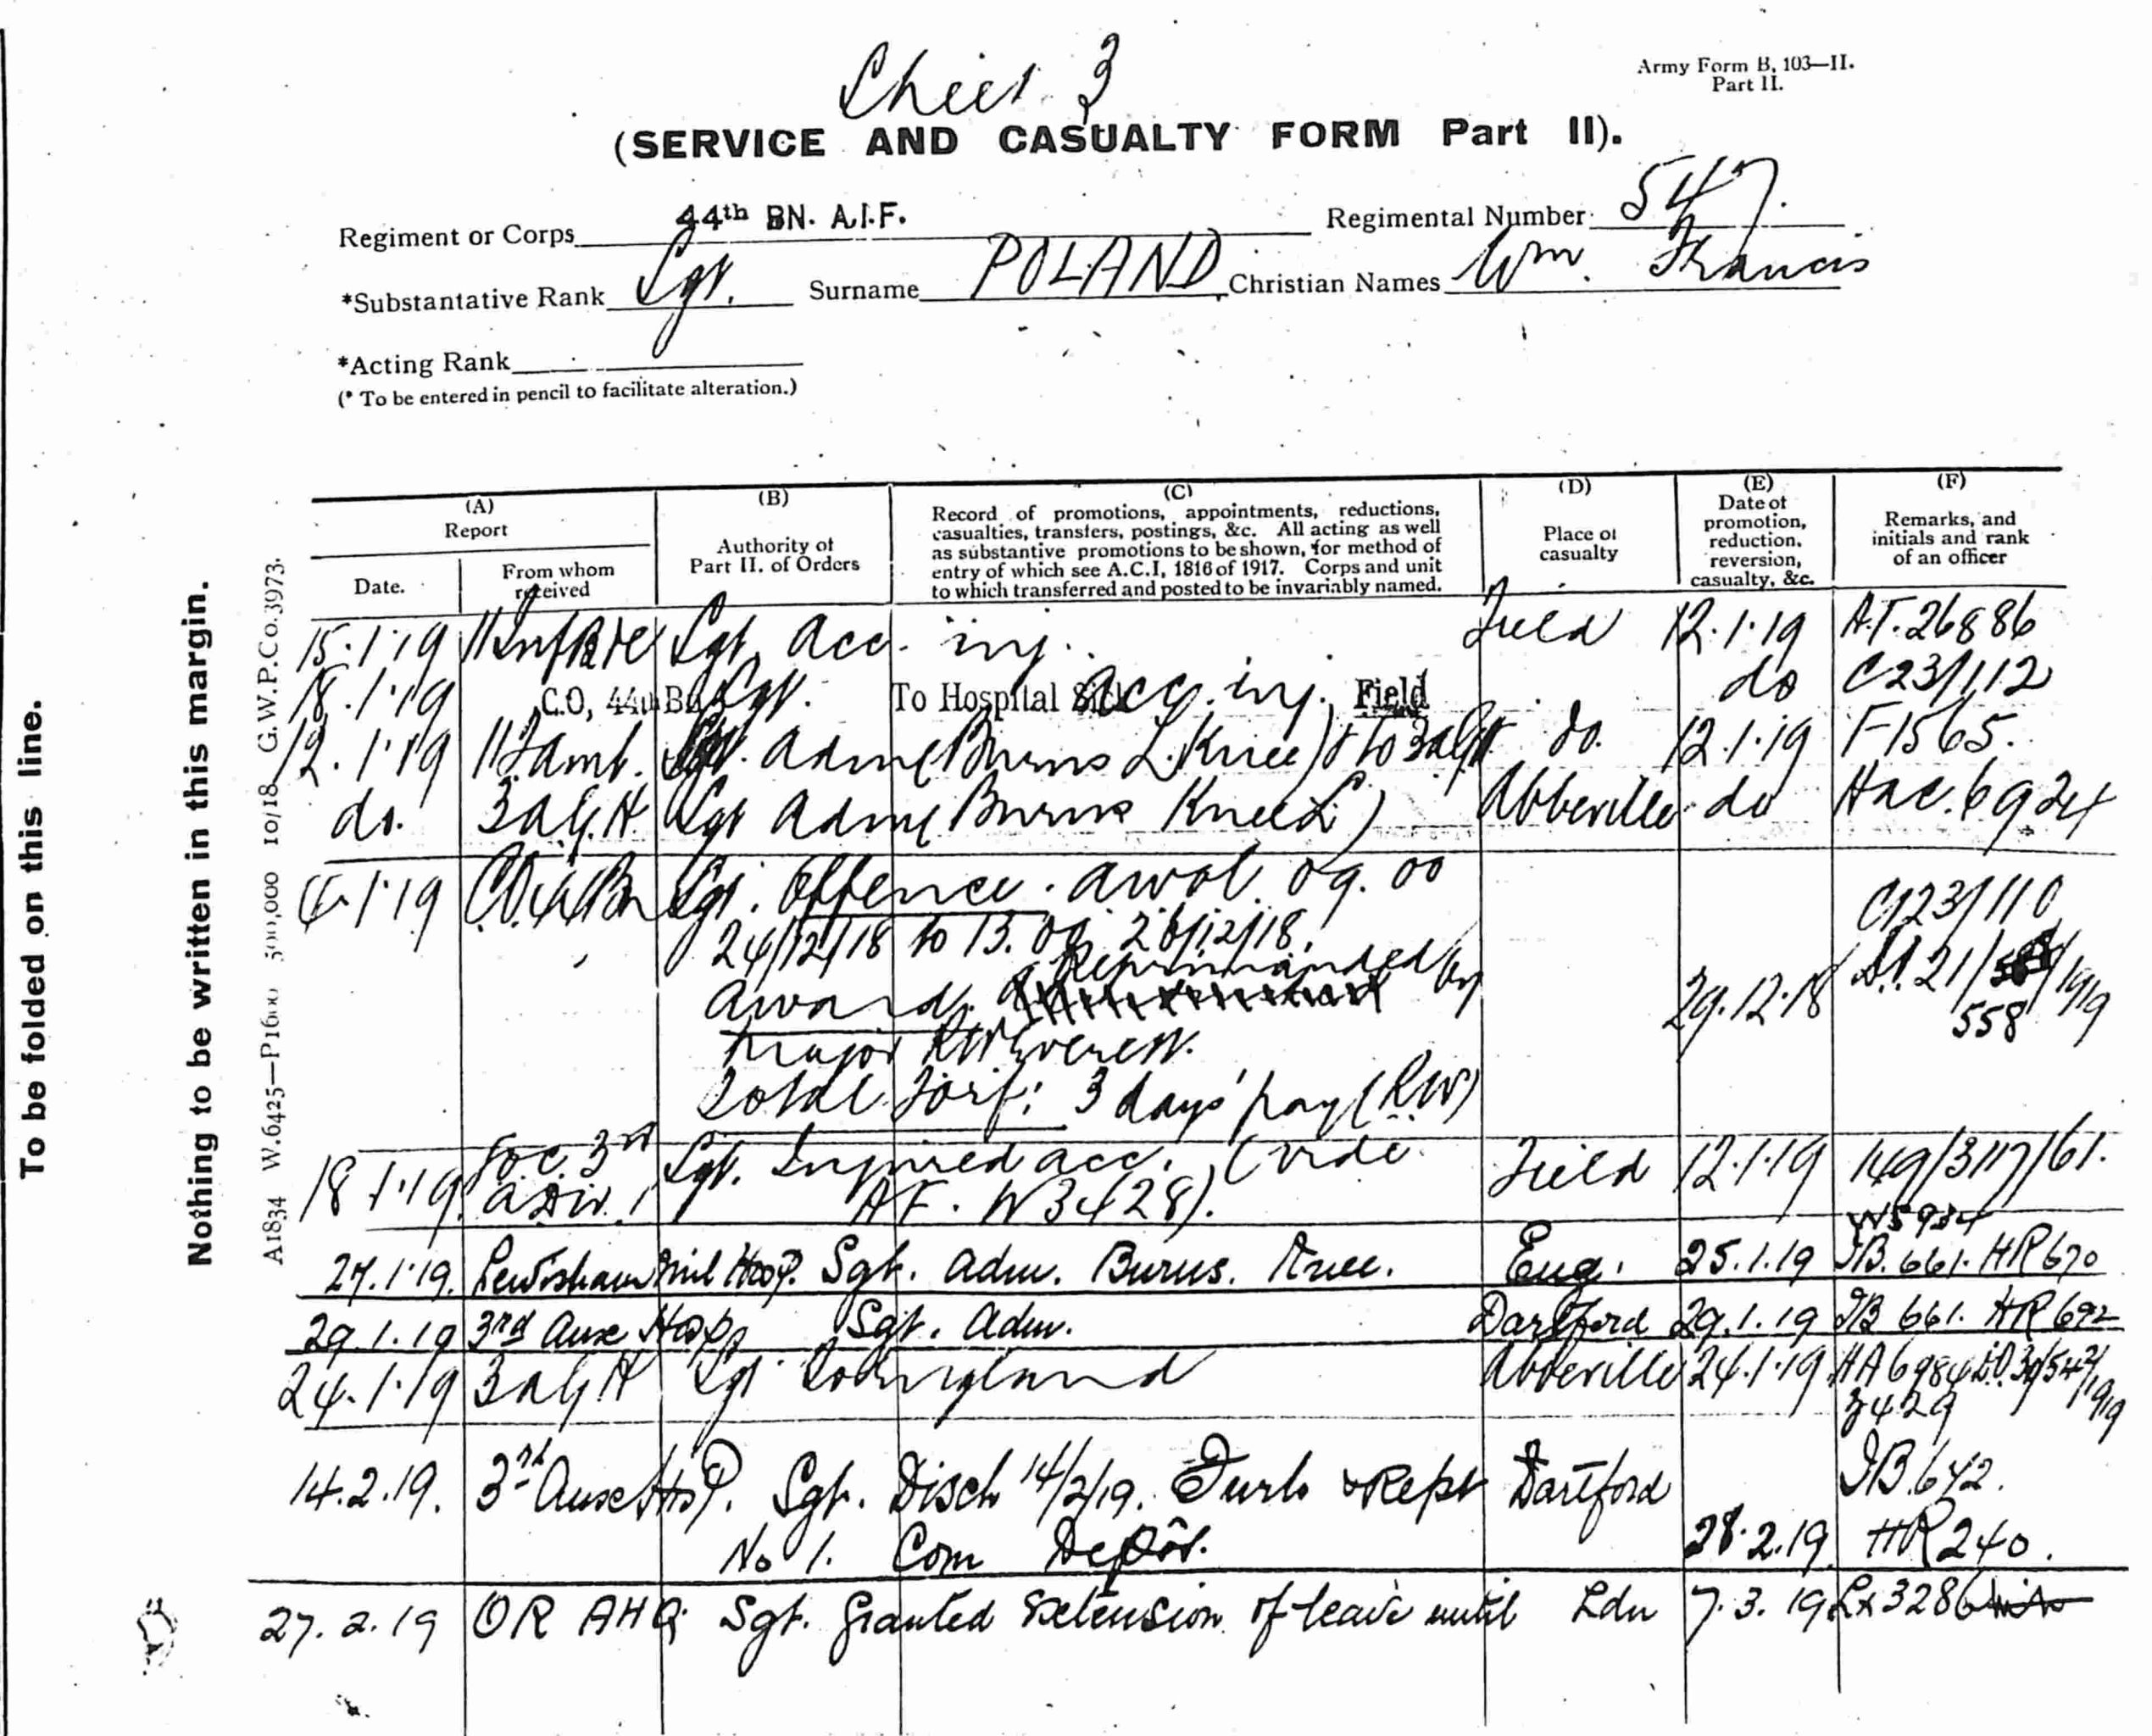 Sheet 3
Army Form B. 103—II.
Part II.
(SERVICE AND CASUALTY FORM Part II).
Regiment or Corps 44th BN. A.I.F. Regimental Number 547.
*Substantative Rank Sgt. Surname POLAND Christian Names Wm. Francis
*Acting Rank
(* To be entered in pencil to facilitate alteration.)
To be folded on this line.
Nothing to be written in this margin.
A1834 W.6425—P1600 500,000 10/18 G.W.P.Co.3973.
(A) Report
Date.
From whom received
(B)
Authority of
Part II. of Orders
(C)
Record of promotions, appointments, reductions,
casualties, transfers, postings, &c. All acting as well
as substantive promotions to be shown, for method of
entry of which see A.C.I, 1816 of 1917. Corps and unit
to which transferred and posted to be invariably named.
(D)
Place of
casualty
(E)
Date of
promotion,
reduction,
reversion,
casualty, &c.
(F)
Remarks, and
initials and rank
of an officer
15.1.19 11 Inf Bde Sgt acc. inj. Field 12.1.19 A.F. 26886
18.1.19 C.O, 44th Bn Sgt. To Hospital Sick acc. inj. Field do C23/112
12.1.19 11 F amb. Sgt. adm (Burns L. Knee) & to 3 AGH do. 12.1.19 F1565.
do. 3 A.G.H. Sgt adm (Burns Knee L) Abbeville do Hac. 6924
1.19 C.O. 44 Bn Sgt. Offence. awol 09.00
24/12/18 to 15.00 26/12/18. C123/110
Award. Reprimanded by 29.12.18 21/ 558 /1919
Major
Total Forf: 3 days' pay (RW)
18.1.19 GOC. 3rd A Div. Sgt. Injured acc. (vide Field 12.1.19 149/3117/61.
AF. W3428).
W5934
27.1.19. Lewisham Mil Hosp. Sgt. adm. Burns. Knee. Eng. 25.1.19 JB. 661. HR 670
29.1.19 3rd Aux Hosp Sgt. adm. Dartford 29.1.19 JB 661. HR 692
24.1.19 3 A G H Sgt to England Abbeville 24.1.19 HA 6984 D.O. 30/542/1919
3429
14.2.19. 3rd Aux Hosp. Sgt. Disch 14/2/19. Furlo & Rept Dartford JB 642.
No 1. Com Depôt. 28.2.19. HR 240.
27.2.19 OR AHQ Sgt. Granted extension of leave until Ldn 7.3.19 Lx 3286